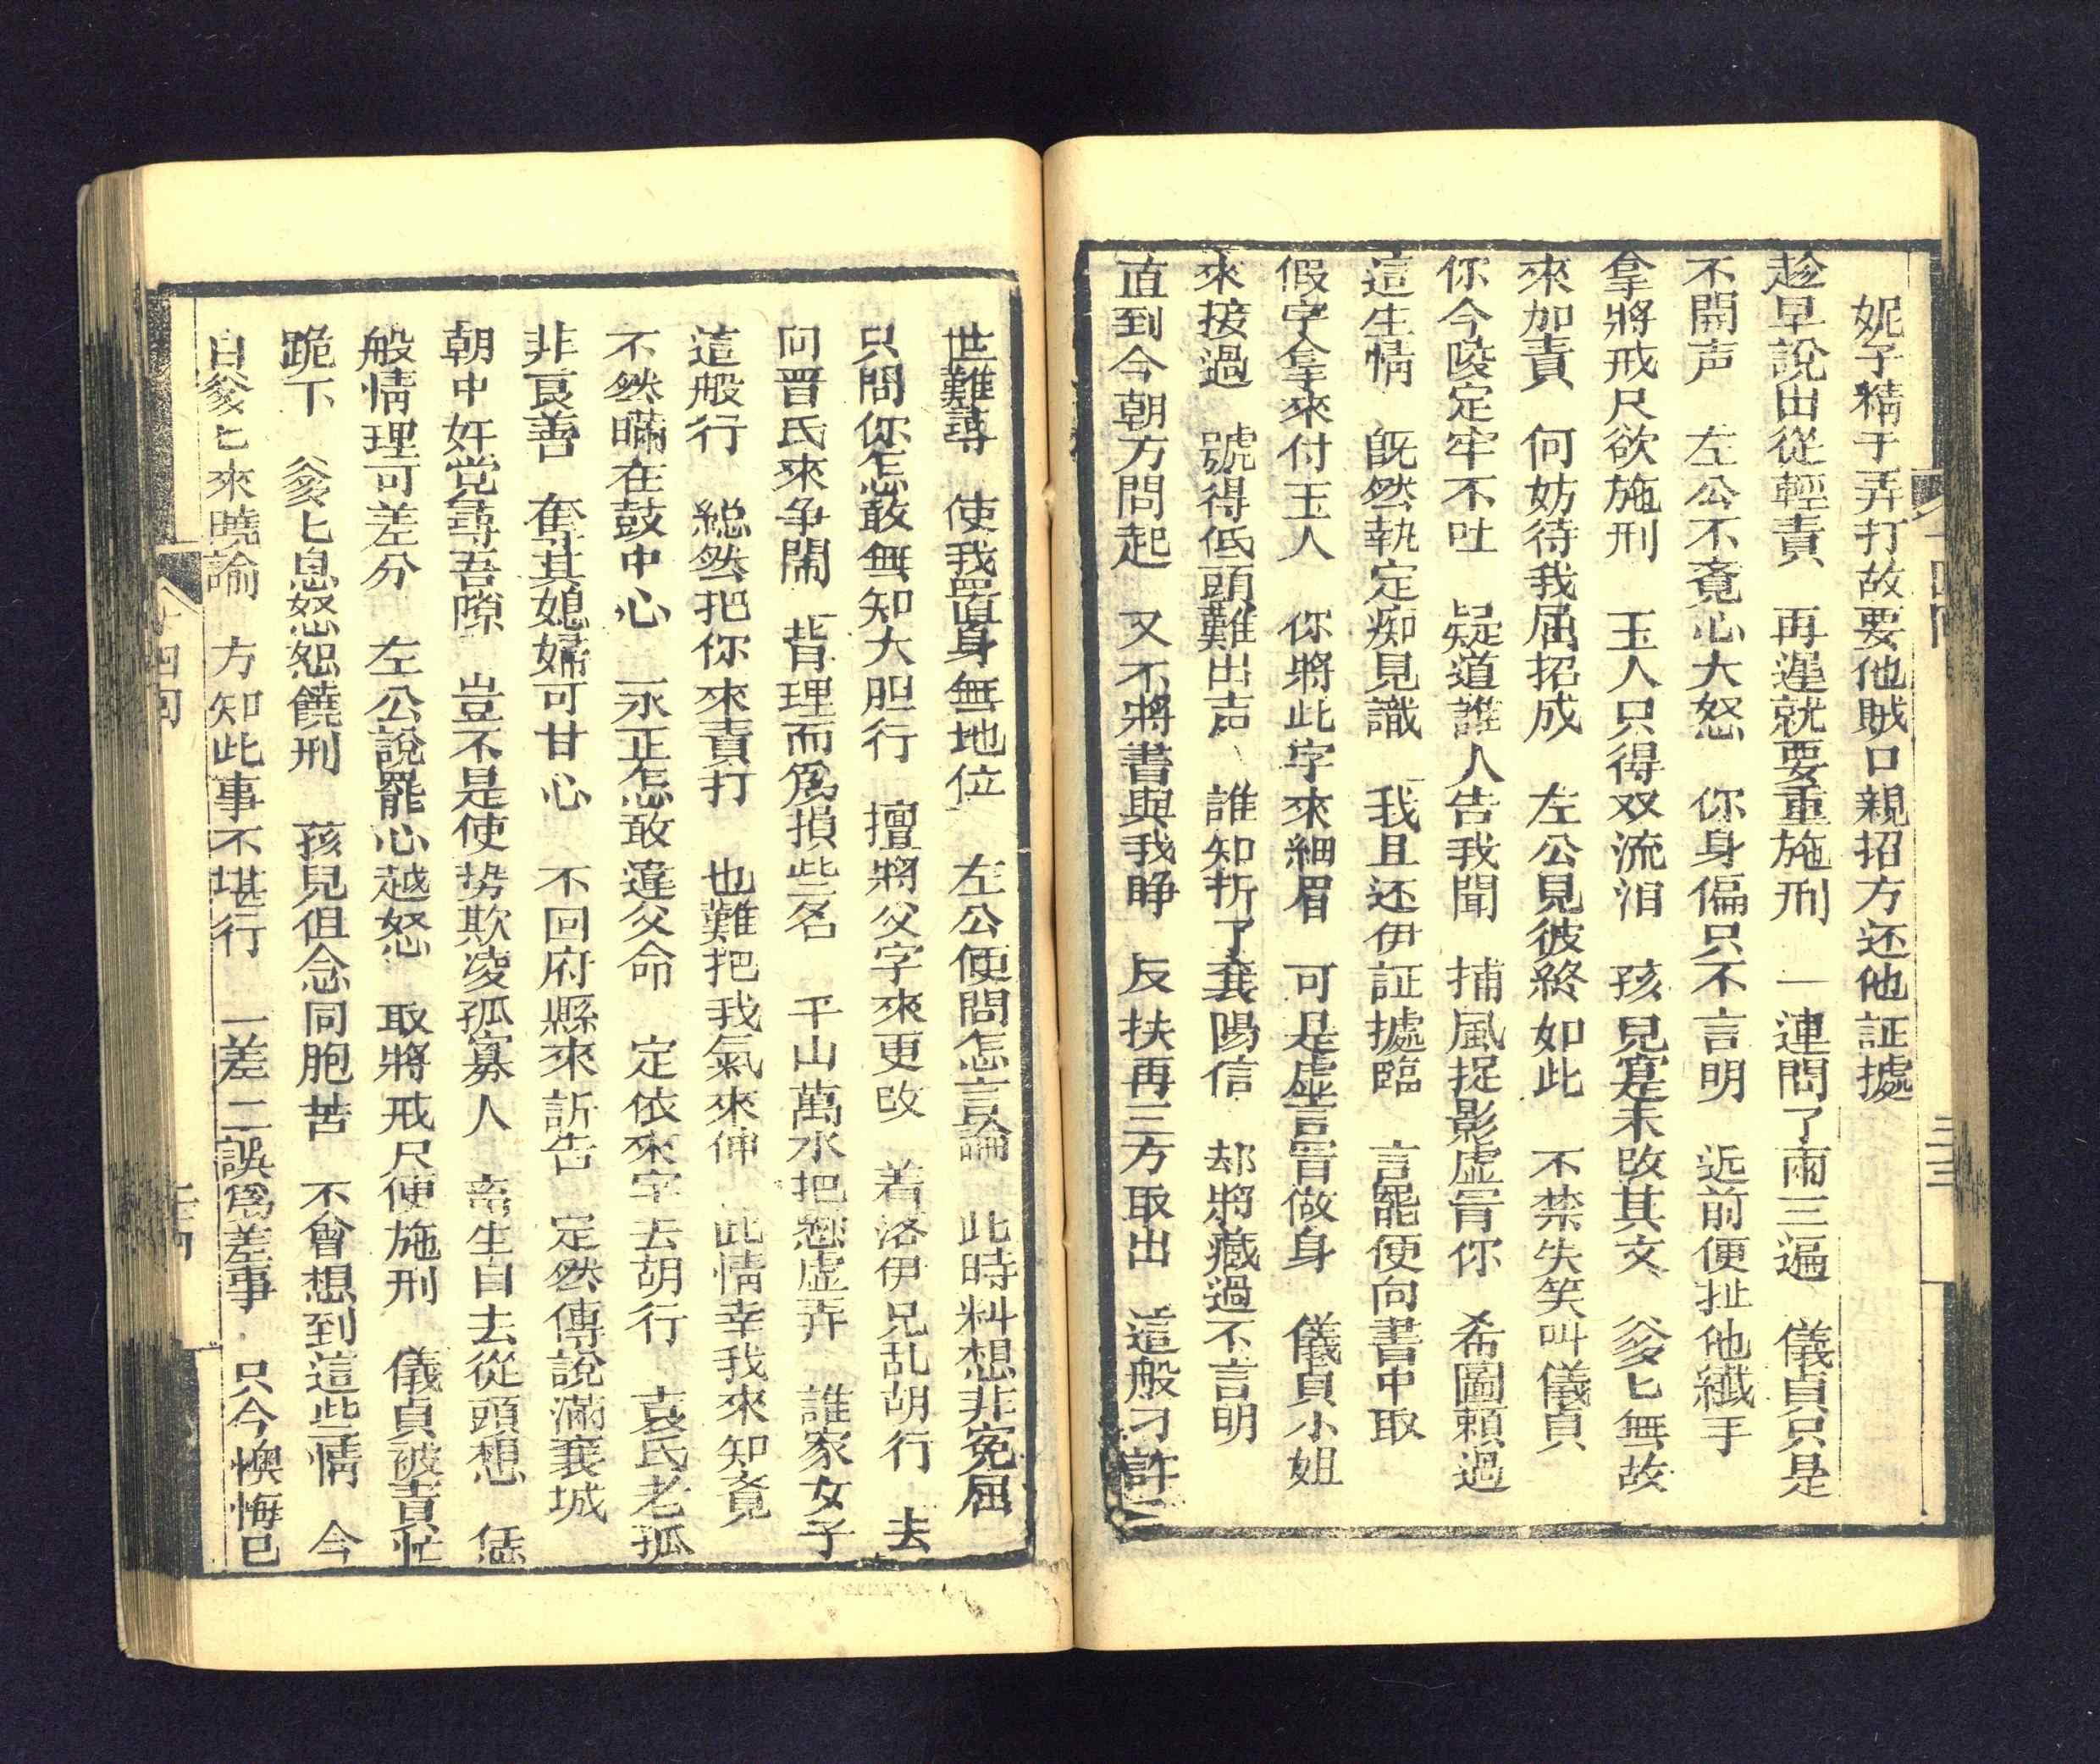 妮子精于弄打故要他賊口親招方还他証據
趁早說出從輕責　再遲就要重施刑　一連問了兩三遍　儀貞只是
不開声　左公不覔心大怒　你身偏只不言明　近前便扯他纖手
拿將戒尺欲施刑　玉人只得双流泪　孩兒寔未改其文　爹匕無故
來加責　何妨待我屈招成　左公見彼終如此　不禁失笑叫儀貞
你今咬定牢不吐　疑道誰人告我聞　捕風捉影虛冐你　希圖賴過
這生情　旣然執定痴見識　我且还伊証據臨　言罷便向書中取
假字拿來付玉人　你將此字來細眉　可是虛言冐做身　儀貞小姐
來接過　號得低頭難出声　誰知折了襄陽信　却將藏過不言明
直到今朝方問起　又不將書與我睁　反扶再三方取出　這般刁詐
世難尋　使我置身無地位　左公便問怎言論　此時料想非寃屈
只問你怎敢無知大胆行　擅將父字來更改　着洛伊兄乱胡行　去
向晋氏來争鬧　背理而爲損些名　千山萬水把愁虛弄　誰家女子
這般行　縂然把你來責打　也難把我氣來伸　此情幸我來知覔
不然瞞在鼓中心　永正怎敢違父命　定依來字去胡行　袁氏老孤
非良善　奪其媳婦可甘心　不回府縣來訴告　定然傳說滿襄城
朝中奸党尋吾隙　豈不是使势欺凌孤寡人　畜生自去從頭想　恁
般情理可差分　左公說罷心越怒　取將戒尺便施刑　儀貞被責忙
跪下　爹匕息怒恕饒刑　孩兒但念同胞苦　不曾想到這些情　今
自爹匕來曉論　方知此事不堪行　一差二誤爲差事　只今懊悔已
十四回